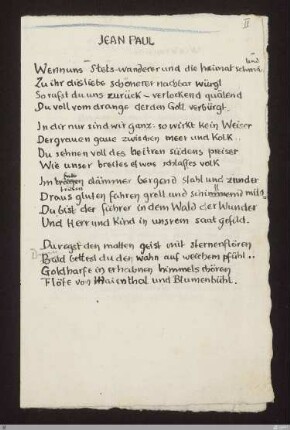 II
JEAN PAUL
Wenn uns Stets-wanderer und die heimat
Zu ihr die liebe schönerer nachbar würgt
So rufst du uns zurück – verlockend quälend
Du voll vom drange der den Gott verbürgt.
In dir nur sind wir ganz: so wirkt kein Weiser
Der grauen gaue zwischen meer und Kolk
Du sehnen voll des bessren südens preiser
Wie unser breites etwas schlaffes volk
Im dämmer bergend stahl und zunder
Draus gluten fahren grell und schimmernd mild
Du bist der führer in dem Wald der Wunder
Und Herr und Kind in unsrem saatgefild.
Du regst den matten geist mit sternenflören
Bald bettest du den wahn auf weichem pfühl..
Goldharfe in erhabnen himmelschören
Flöte von Maienthal und Blumenbühl.